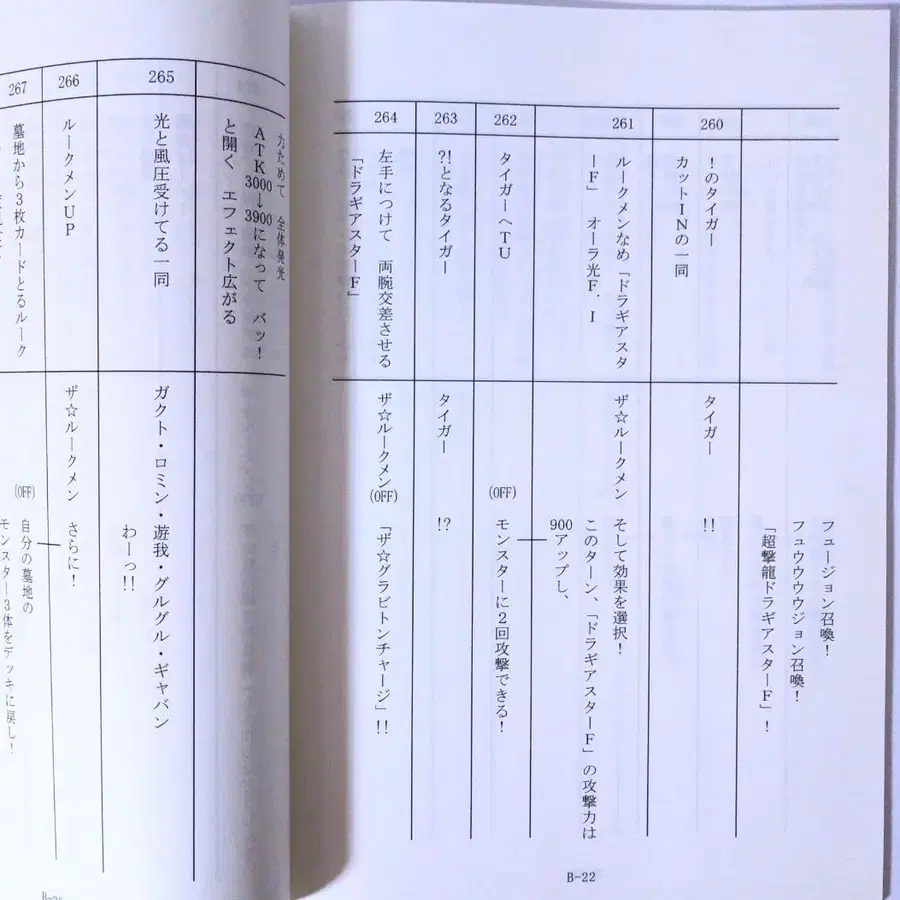 フュージョン召喚！
フュウウウウジョン召喚！
「超撃龍ドラギアスターF」！
260
！のタイガー
カットINの一同
タイガー
!!
261
ルークメンなめ「ドラギアスタ
ーF」　オーラ光F．I
ザ☆ルークメン
そして効果を選択！
このターン、「ドラギアスターF」の攻撃力は
900アップし、
262
タイガーへTU
(OFF)
モンスターに2回攻撃できる！
263
?!となるタイガー
タイガー
!?
264
左手につけて　両腕交差させる
「ドラギアスターF」
ザ☆ルークメン(OFF)
「ザ☆グラビトンチャージ」!!
B-22
力ためて　全体発光
ATK3000→3900になって　バッ！
と開く　エフェクト広がる
265
光と風圧受けてる一同
ガクト・ロミン・遊我・グルグル・ギャバン
わーっ!!
266
ルークメンUP
ザ☆ルークメン
さらに！
267
墓地から3枚カードとるルーク
(OFF)
自分の墓地の
モンスター3体をデッキに戻し！